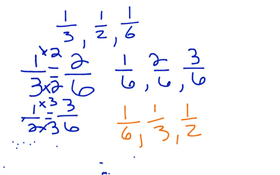 1/3, 1/2, 1/6
1/3 ×2/×2 = 2/6
1/6, 2/6, 3/6
1/2 ×3/×3 = 3/6
1/6, 1/3, 1/2